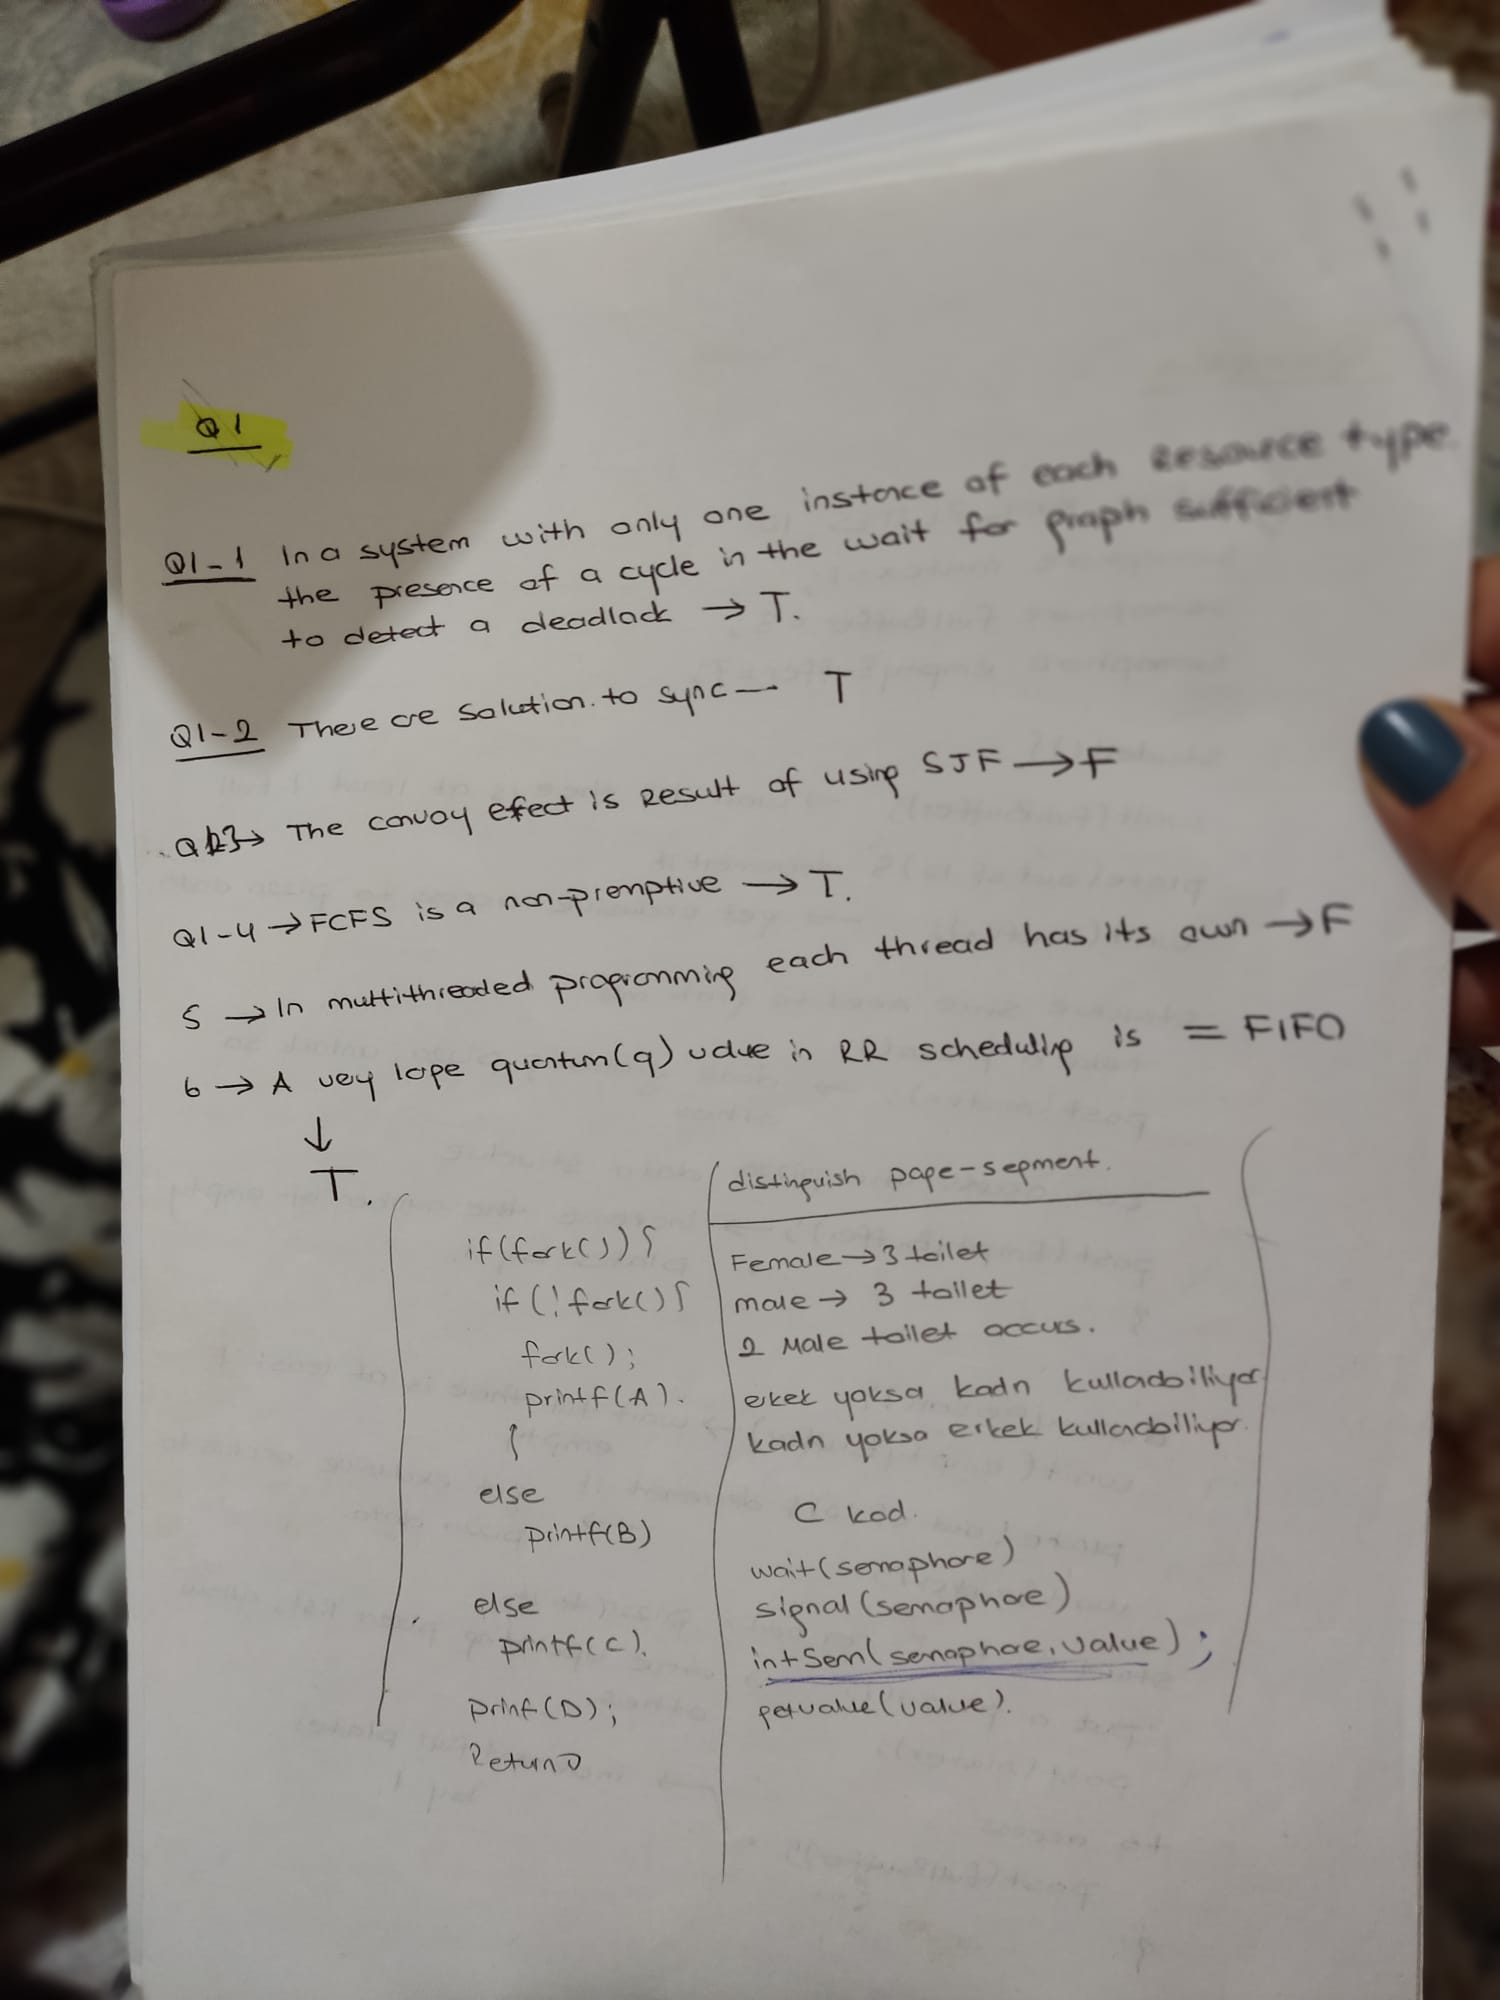 Q1
Q1-1 In a system with only one instance of each Resource type
the presence of a cycle in the wait for graph sufficient
to detect a deadlock → T.
Q1-2 There are solution. to sync — T
Q1-3 → The convoy efect is Result of using SJF → F
Q1-4 → FCFS is a non-premptive → T.
5 → In multithreaded programming each thread has its own → F
6 → A very large quantum(q) value in RR scheduling is = FIFO
↓
T.
if(fork()) {
if (! fork() {
fork();
printf(A).
}
else
printf(B)
else
printf(C).
Prinf(D);
Return 0
distinguish page-segment.
Female → 3 toilet
male → 3 toilet
2 Male toilet occurs.
erkek yoksa kadn kullanabiliyor
kadn yoksa erkek kullanabiliyor.
C kod.
wait(semaphore)
signal(semaphore)
intSem(semaphore, value);
getvalue(value).